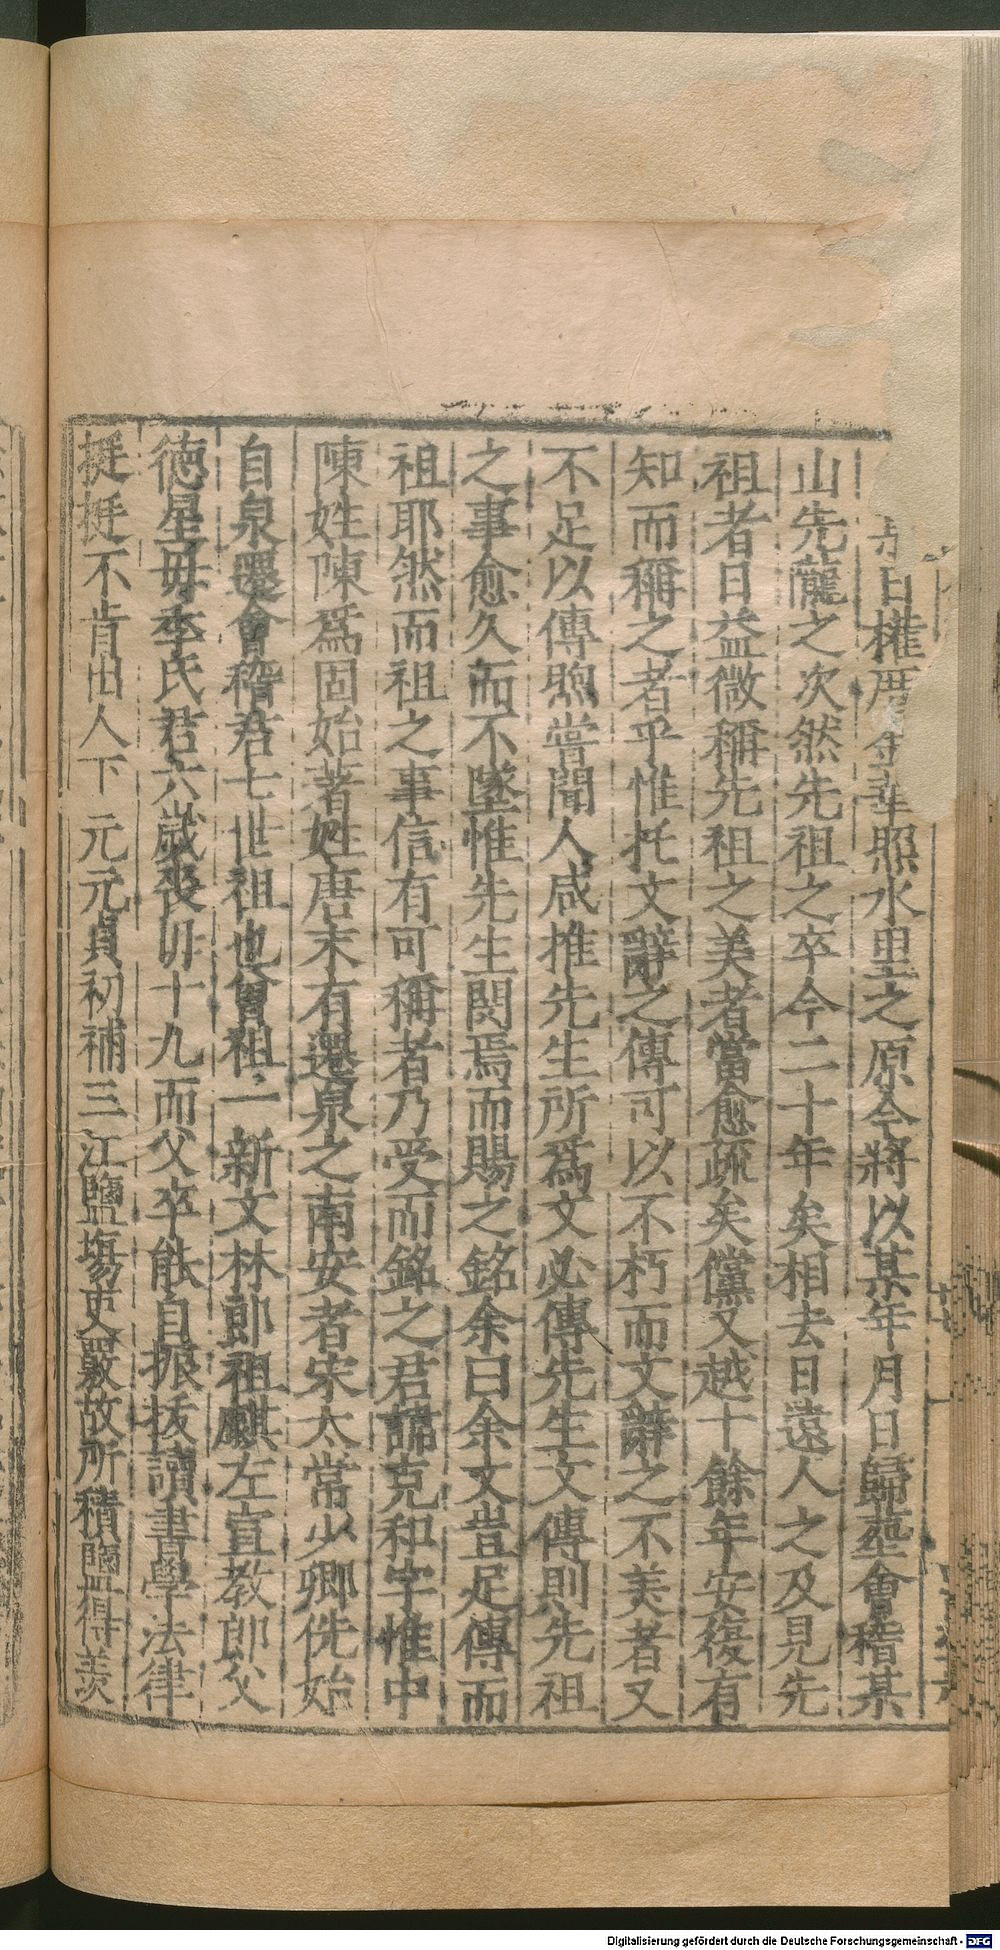 日權厝金華照水里之原今將以某年月日歸塟會稽某
山先蘢之次然先祖之卒今二十年矣相去日遠人之及見先
祖者日益微稱先祖之美者當愈疏矣儻又越十餘年安復有
知而稱之者乎惟托文辭之傳可以不朽而文辭之不美者又
不足以傳煦嘗聞人咸推先生所爲文必傳先生文傳則先祖
之事愈久而不墜惟先生閔焉而賜之銘余曰余文豈足傳而
祖耶然而祖之事信有可稱者乃受而銘之君諱克和字惟中
陳姓陳爲固始著姓唐末有還泉之南安者宋太常少卿侁始
自泉還會稽君七世祖也曾祖一新文林郎祖麒左宣教郎父
德星毋李氏君六歲喪毋十九而父卒能自振拔讀書學法律
挺挺不肯出人下元元貞初補三江鹽塲吏覈故所積鹽得羡
Digitalisierung gefördert durch die Deutsche Forschungsgemeinschaft - DFG